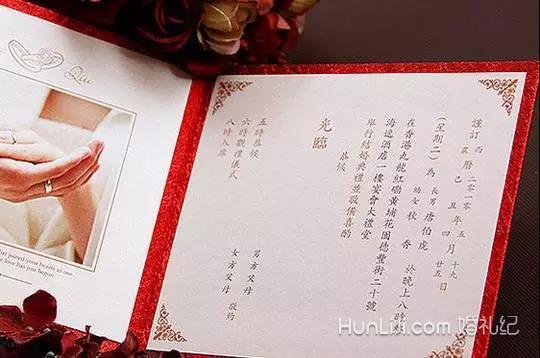 Qiu
that joined your hearts as one
love has just begun
謹訂
西 二〇一〇 五 四月 十九
農曆 己丑年 廿五日
(星期二)為 長男 唐伯虎
幼女 秋香 於晚上八時
在香港九龍紅磡黃埔花園德豐街二十號
海逸酒店一樓宴會大禮堂
舉行結婚典禮並敬備喜酌
恭候
光臨
男方父母
女方父母 敬約
五時恭候
六時觀禮儀式
八時入席
HunLiJi.com 婚礼纪